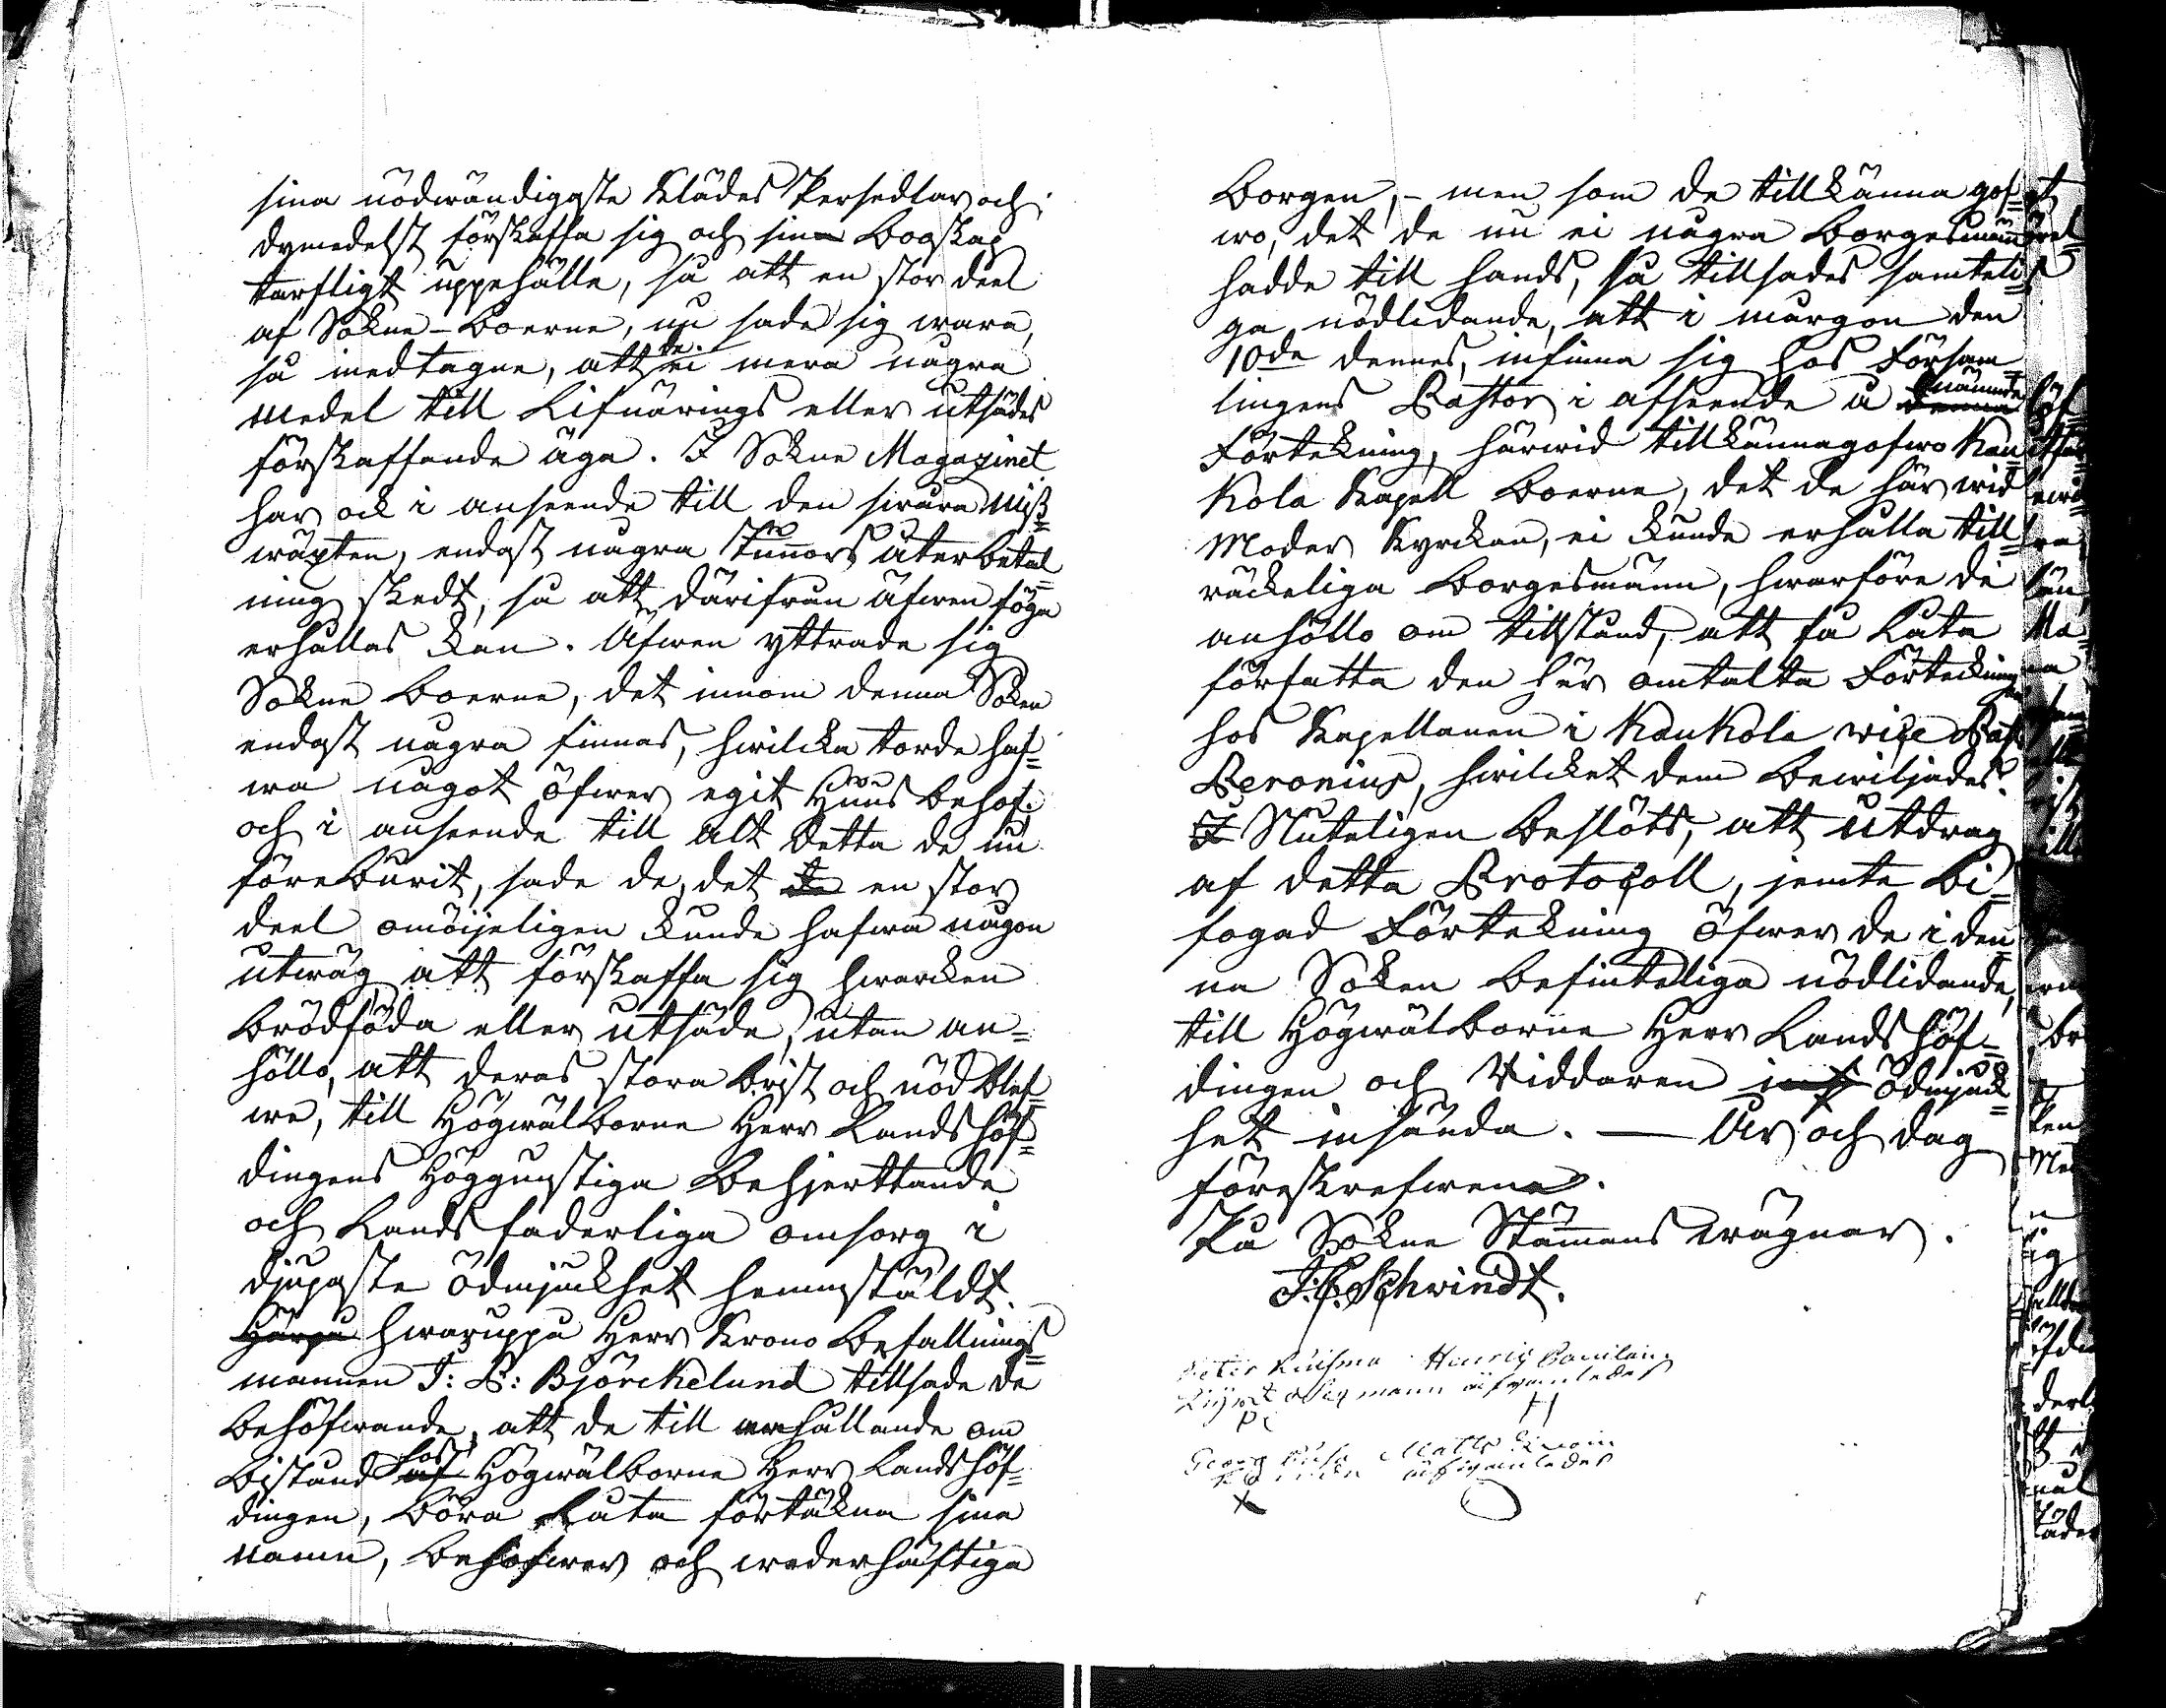 sina nödwändigaste Klädes Persedlar och
dymedelst förskaffa sig och sina Boskap
tarfligt uppehälle, så att en stor deel
af Sokne-Boerne, nu sade sig wara,
så medtagne, att de ei mera några
medel till Lifnärings eller utsädes
förskaffande äga. I Sokne Magazinet
har ock i anseende till den swåra Miß=
wäxten, endast några Tunnors återbetal=
ning skedt, så att därifrån äfwen föga
erhållas kan. Äfwen yttrade sig
Sokne Boerne, det innom denna Soken
endast några finnas, hwilcka torde haf=
wa något öfwer egit Huus behof:
och i anseende till alt detta de nu
föreburit, sade de, det en stor
deel omöijeligen kunde hafwa någon
utwäg att förskaffa sig hwarcken
Brödföda eller utsäde, utan an=
höllo, att deras stora brist och nöd blef=
we, till Högwälborne Herr Landshöf=
dingens Höggunstiga Behjerttande
och Lands faderliga omsorg i
djupaste ödmjukhet hemmstäldt.
Härpå hwaruppå Herr Krono Befallnings=
mannen J: P: Björckelund tillsade de
Behöfwande, att de till erhållande om
Bistånd af hos Högwälborne Herr Landshöf=
dingen, böra låta förtäkna sina
namn, behofwer och wederhäftiga
Borgen, – men som de tillkänna gof=
wo, det de nu ei några Borgesmänn
hadde till hands, så tillsades samteli=
ga nödlidande, att i morgon den
10de dennes, infinna sig hos Försam=
lingens Pastor i afseende å denna nämnde
Förtekning, härwid tillkännagofwo Kau=
kola Kapell Boerne, det de här wid
Moder Kyrckan, ei kunde erhålla till=
räckeliga Borgesmänn, hwarföre de
anhöllo om tillstånd, att få låta
författa den här omtalta Förteckningen
hos Kapellanen i Kaukola wice Past
Peronius, hwilcket dem bewiljades.
I Sluteligen beslöts, att utdrag
af detta Protocoll, jemte bi=
fogad Förtekning öfwer de i den=
na Soken befinteliga nödlidande,
till Högwälborne Herr Landshöf=
dingen och Riddaren i ödmjuk=
het insända. — År och dag
föreskrefwene.
På Sokne Stämmans wägnar.
J. C. Schwindt.
Peter Henrich
äfwenledes
Georg Matts
äfwenledes